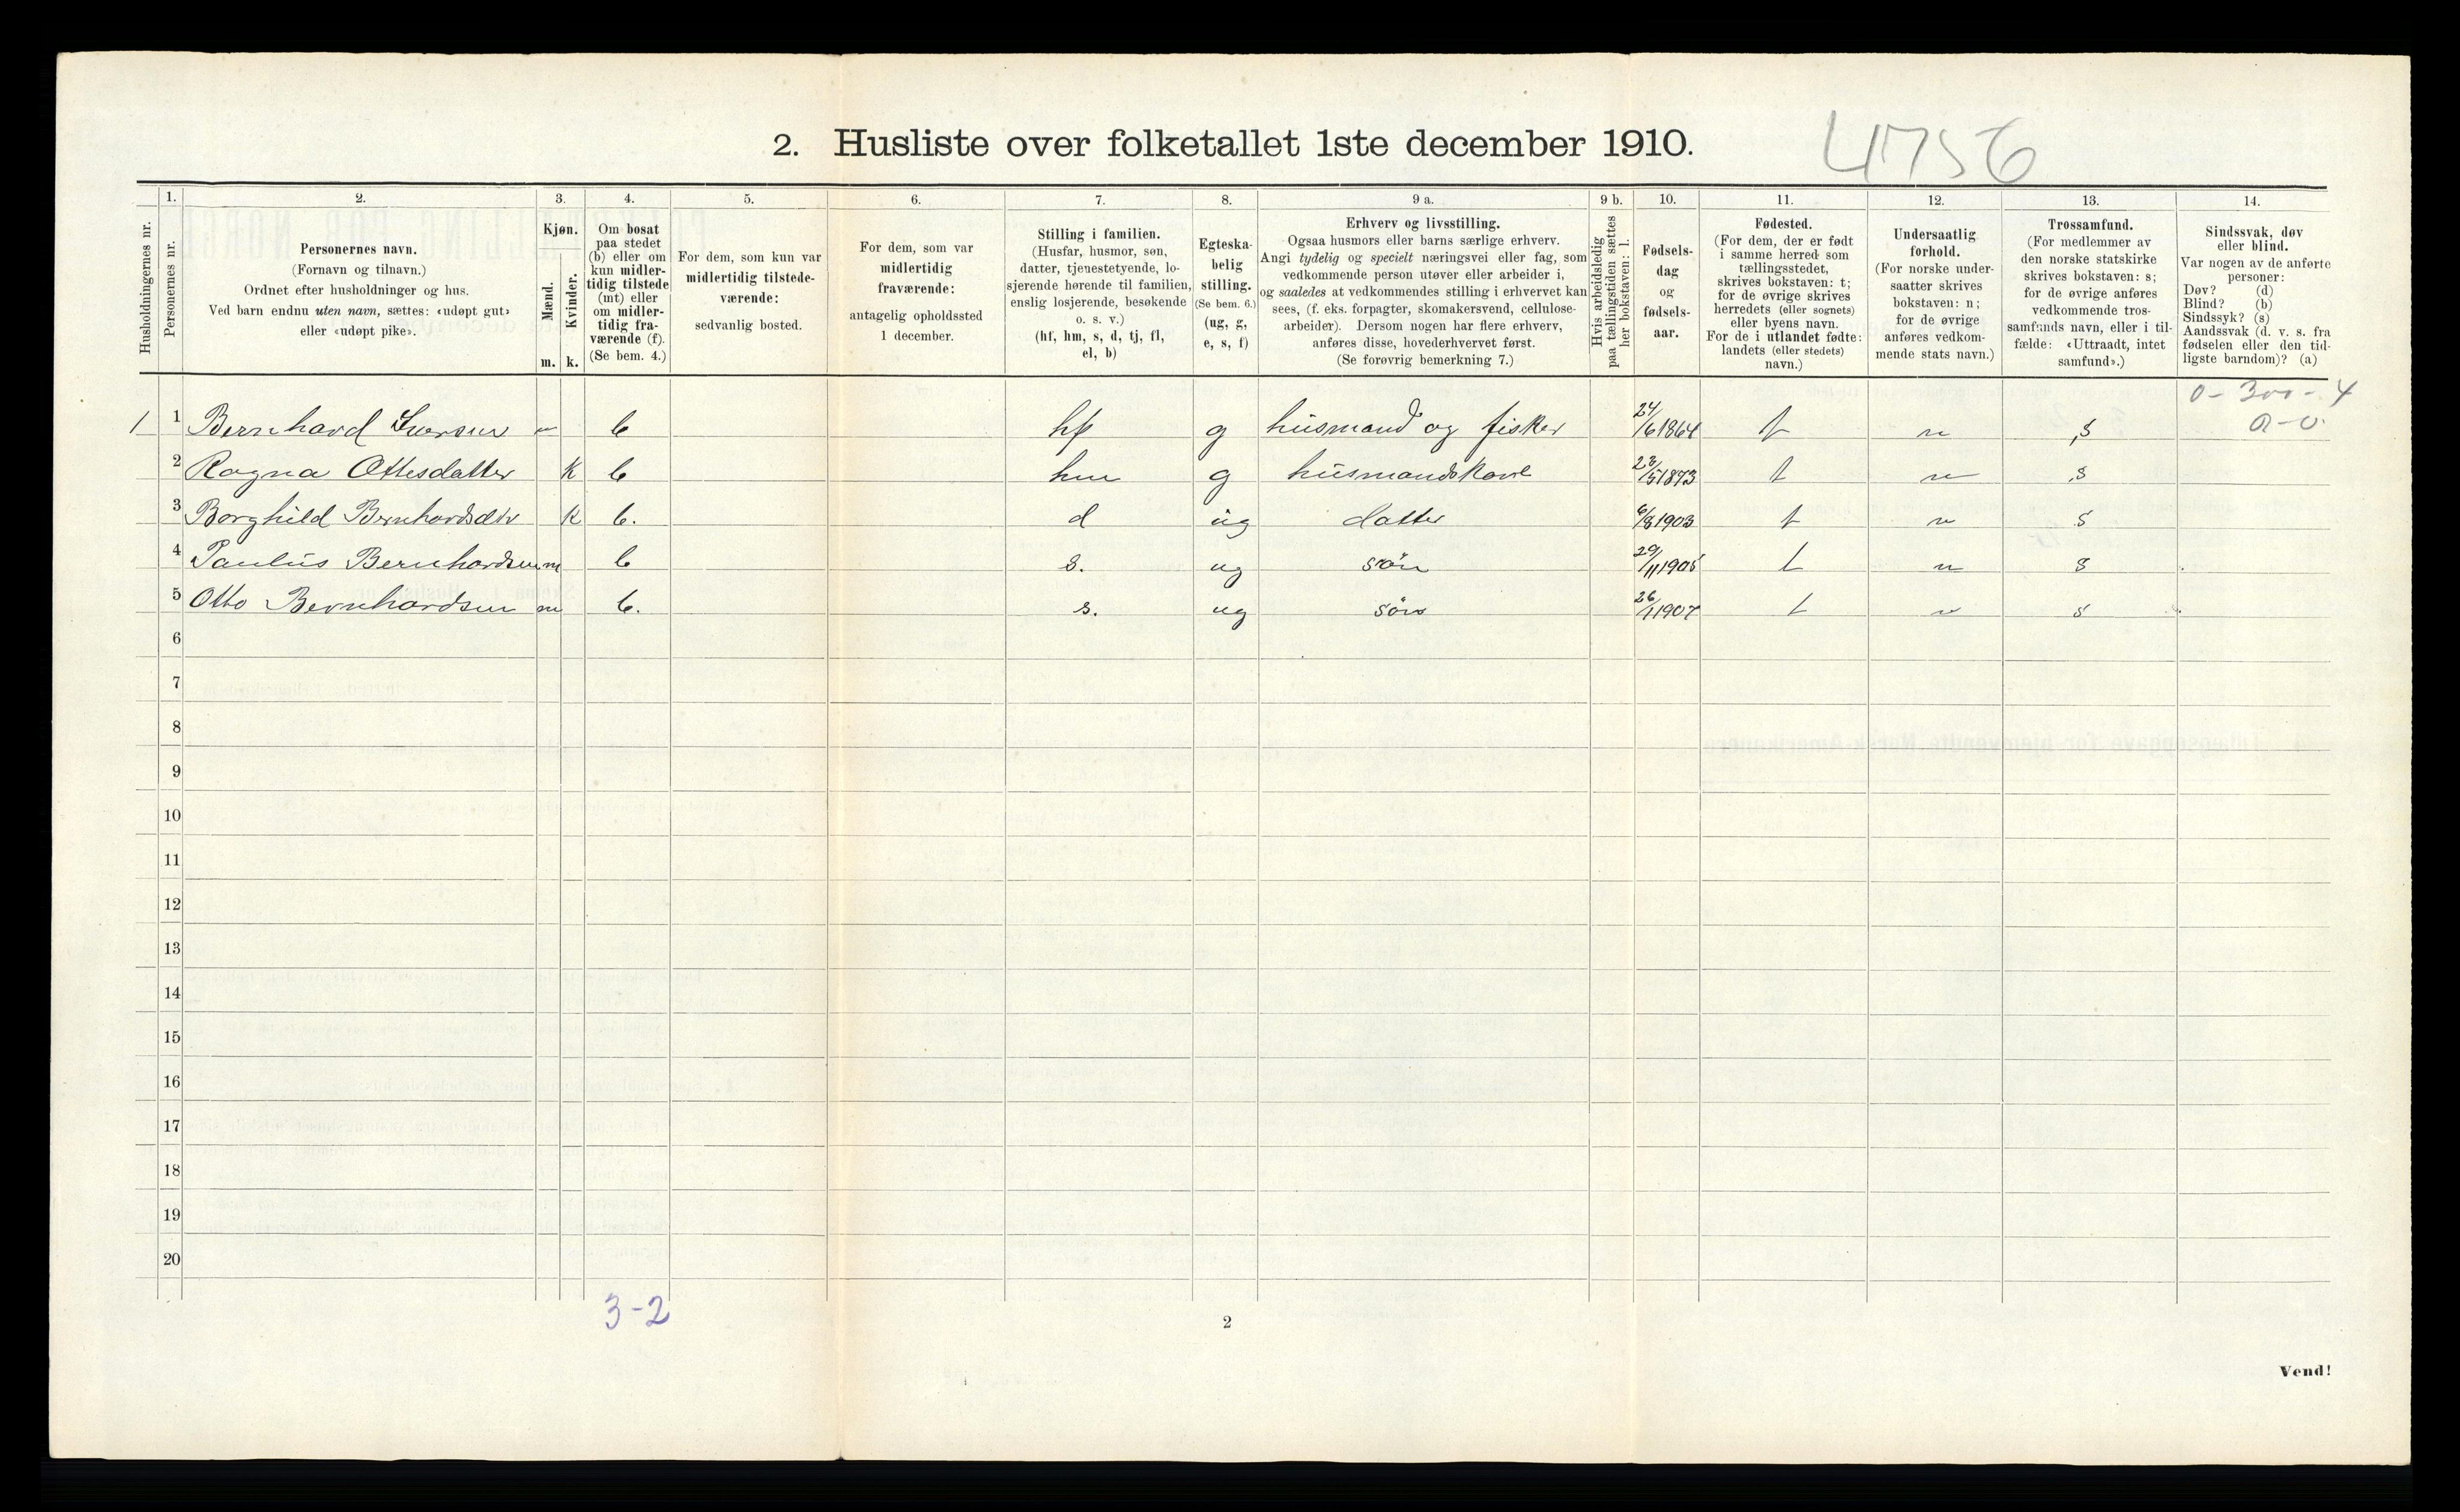 2. Husliste over folketallet 1ste december 1910.
4756
Husholdningernes nr.
1.
Personernes nr.
2.
Personernes navn.
(Fornavn og tilnavn.)
Ordnet efter husholdninger og hus.
Ved barn endnu uten navn, sættes: «udøpt gut»
eller «udøpt pike».
3.
Kjøn.
Mænd.
Kvinder.
m. k.
4.
Om bosat
paa stedet
(b) eller om
kun midler-
tidig tilstede
(mt) eller
om midler-
tidig fra-
værende (f).
(Se bem. 4.)
5.
For dem, som kun var
midlertidig tilstede-
værende:
sedvanlig bosted.
6.
For dem, som var
midlertidig
fraværende:
antagelig opholdssted
1 december.
7.
Stilling i familien.
(Husfar, husmor, søn,
datter, tjenestetyende, lo-
sjerende hørende til familien,
enslig losjerende, besøkende
o. s. v.)
(hf, hm, s, d, tj, fl,
el, b)
8.
Egteska-
belig
stilling.
(Se bem. 6.)
(ug, g,
e, s, f)
9 a.
Erhverv og livsstilling.
Ogsaa husmors eller barns særlige erhverv.
Angi tydelig og specielt næringsvei eller fag, som
vedkommende person utøver eller arbeider i,
og saaledes at vedkommendes stilling i erhvervet kan
sees, (f. eks. forpagter, skomakersvend, cellulose-
arbeider). Dersom nogen har flere erhverv,
anføres disse, hovederhvervet først.
(Se forøvrig bemerkning 7.)
9 b.
Hvis arbeidsledig
paa tællingstiden sættes
her bokstaven: l.
10.
Fødsels-
dag
og
fødsels-
aar.
11.
Fødested.
(For dem, der er født
i samme herred som
tællingsstedet,
skrives bokstaven: t;
for de øvrige skrives
herredets (eller sognets)
eller byens navn.
For de i utlandet fødte:
landets (eller stedets)
navn.)
12.
Undersaatlig
forhold.
(For norske under-
saatter skrives
bokstaven: n;
for de øvrige
anføres vedkom-
mende stats navn.)
13.
Trossamfund.
(For medlemmer av
den norske statskirke
skrives bokstaven: s;
for de øvrige anføres
vedkommende tros-
samfunds navn, eller i til-
fælde: «Uttraadt, intet
samfund».)
14.
Sindssvak, døv
eller blind.
Var nogen av de anførte
personer:
Døv? (d)
Blind? (b)
Sindssyk? (s)
Aandssvak (d. v. s. fra
fødselen eller den tid-
ligste barndom)? (a)
0 - 300 - 4
0 - 0
1 1 Bernhard m b hf g husmand og fisker 24/6 1864 t n s
2 Ragna Ottesdatter k b hm g husmandskone 23/5 1873 t n s
3 Borghild Bernhardsdtr k b. d ug datter 6/8 1903 t n s
4 Paulus Bernhardsen m b s. ug søn 29/11 1905 t n s
5 Otto Bernhardsen m b. s. ug søn 26/1 1907 t n s
6
7
8
9
10
11
12
13
14
15
16
17
18
19
20
3-2
2
Vend!